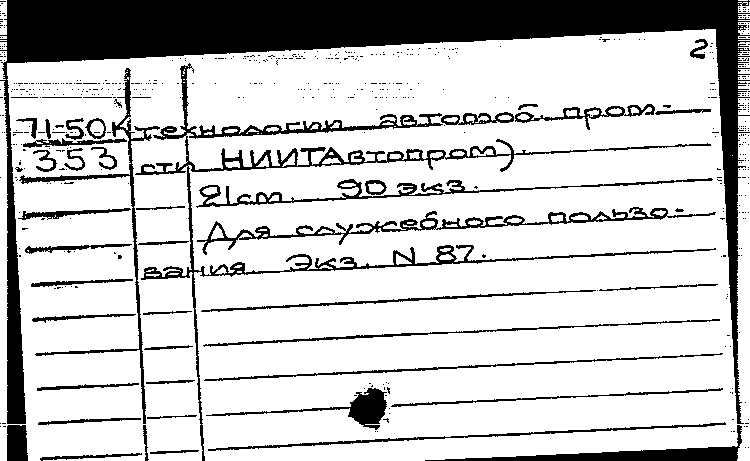 2
71-50К технологии автомоб. пром-
353 сти НИИТАвтопром)
21см. 90 экз.
Для служебного пользо-
вания. Экз. N 87.